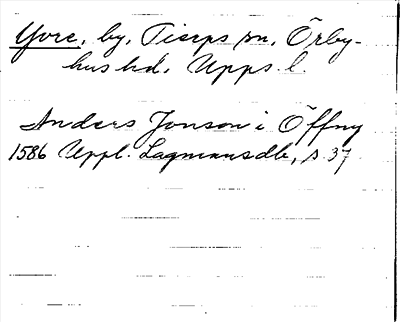 Yvre, by, Tierps sn, Örby-
hus hd, Upps. l.
Anders Jonson i Öffny
1586 Uppl. Lagmansdb, s. 37